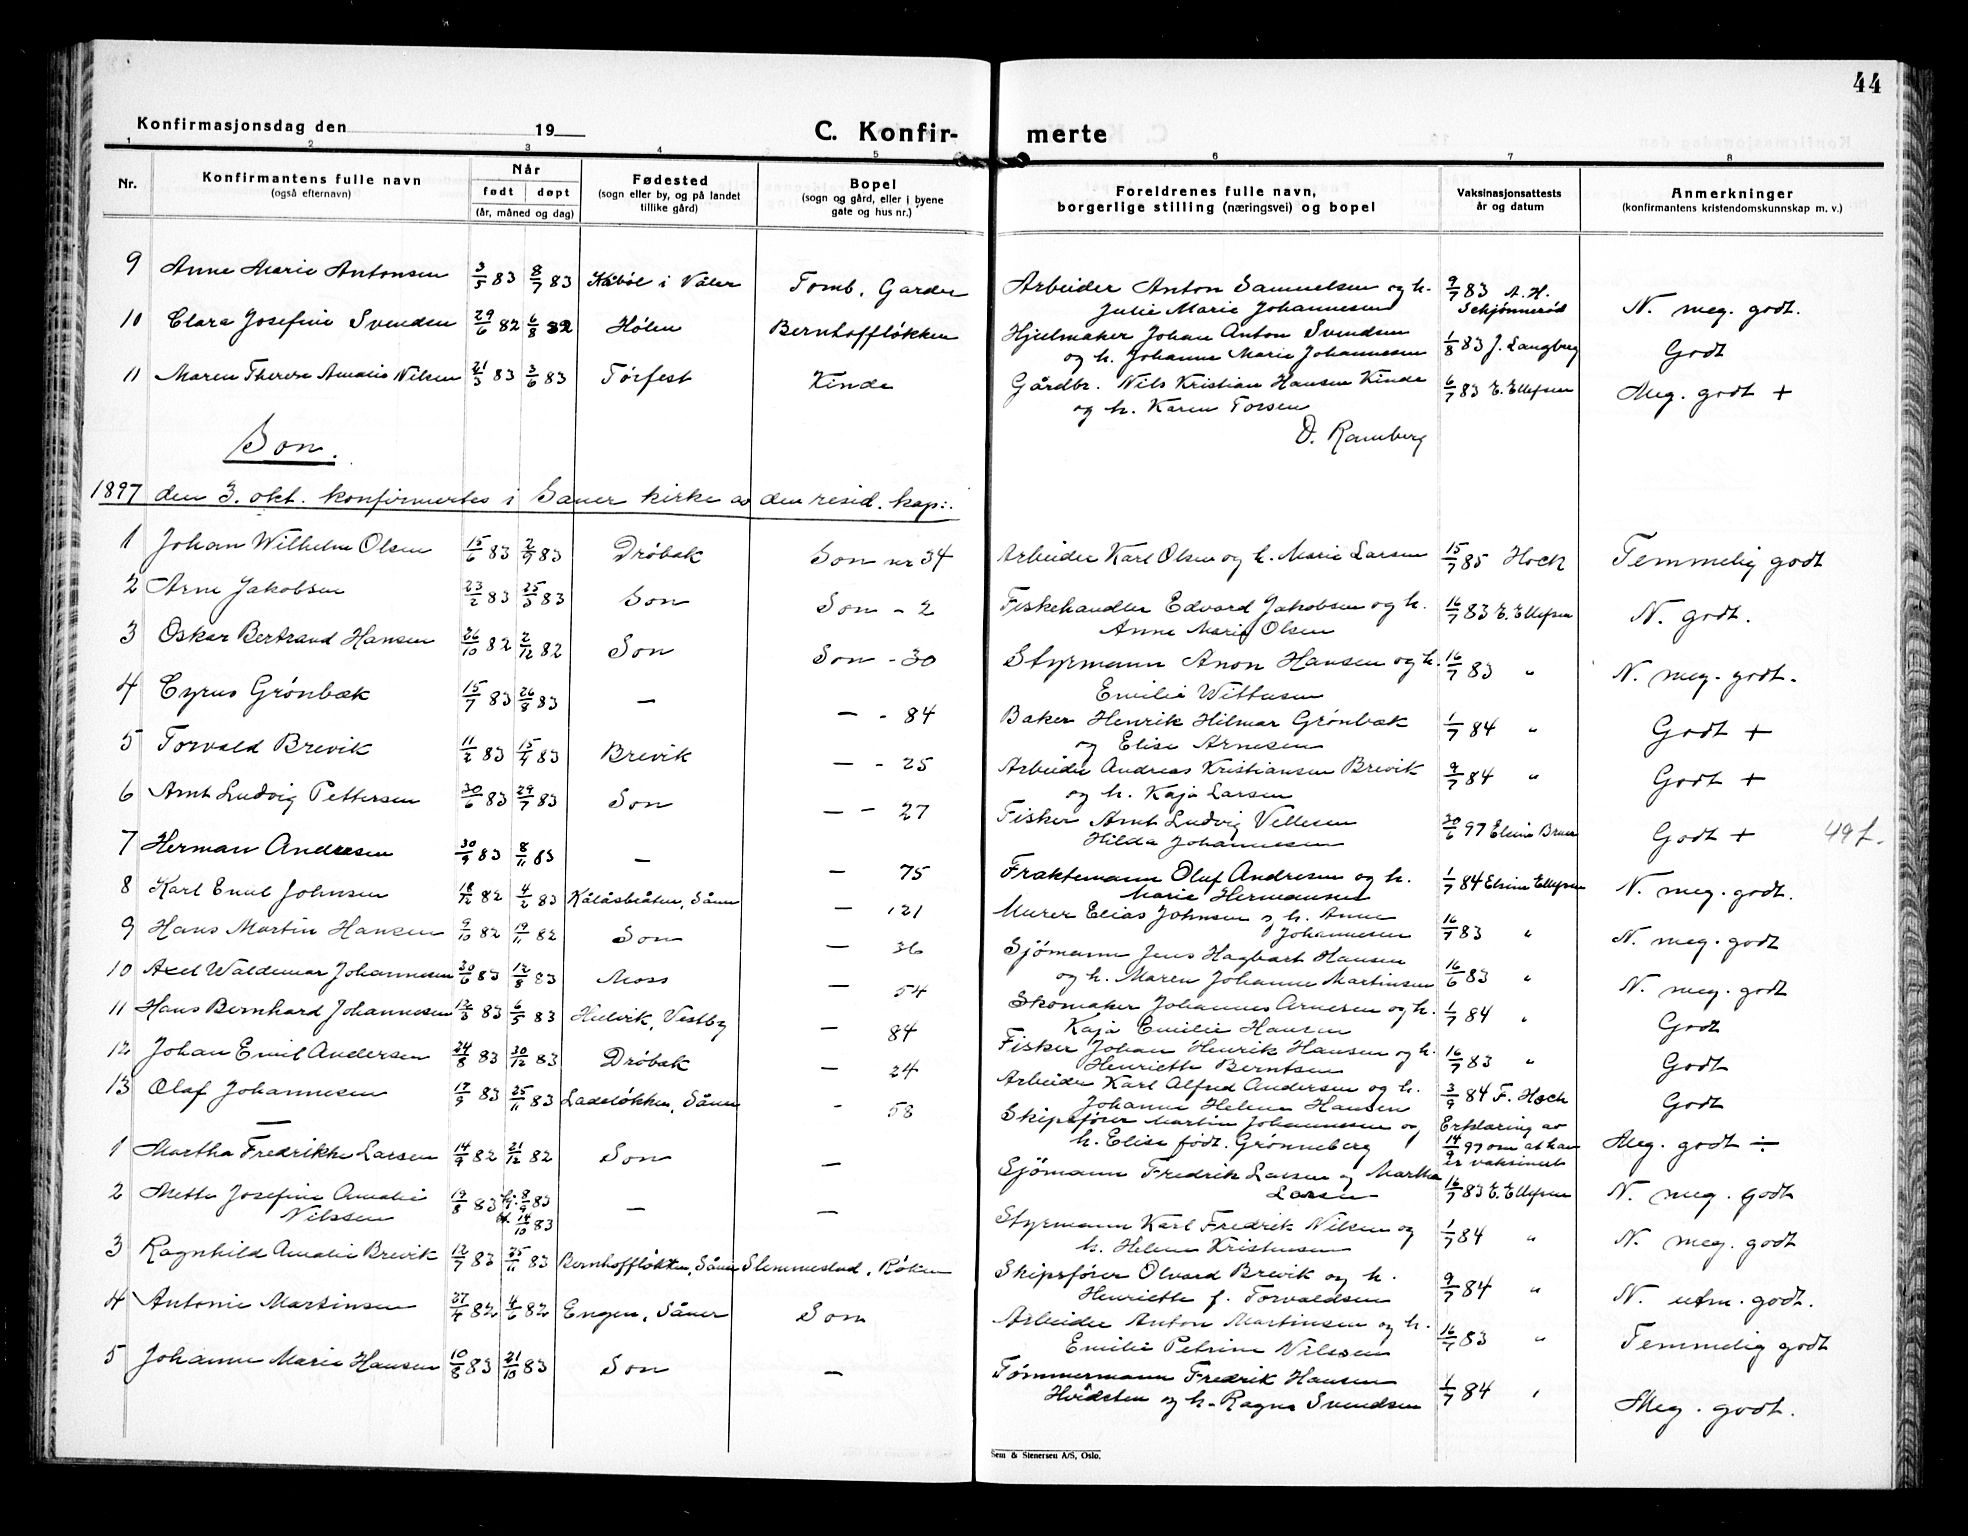 44
Konfirmasjonsdag den 19
C. Konfir- merte
1 2 3 4 5 6 7 8
Nr.
Konfirmantens fulle navn
(også efternavn)
Når
født døpt
(år, måned og dag)
Fødested
(sogn eller by, og på landet
tillike gård)
Bopel
(sogn og gård, eller i byene
gate og hus nr.)
Foreldrenes fulle navn,
borgerlige stilling (næringsvei) og bopel
Vaksinasjonsattests
år og datum
Anmerkninger
(konfirmantens kristendomskunnskap m. v.)
9 Anne Marie Antonsen 3/5 83 8/7 83 Kåbøl i Våler Tomb, Garder Arbeider Anton Samuelsen og h. 9/7 83 A. H. N. meg. godt.
Julie Marie Johannesen Schjønnerød
10 Clara Josefine Svendsen 29/6 82 6/8 82 Hølen Bernhoffløkken Hjulmaker Johan Anton Svendsen 1/8 83 J. Langberg Godt
og h. Johanne Marie Johannesen
11 Maren Therese Amalie Nilsen 21/3 83 3/6 83 Tørfest Kinde Gårdbr. Nils Kristian Hansen Kinde 6/7 83 E. Ellefsen Meg. godt +
og h. Karen Torsen
O. Ramberg
Son.
1897 den 3. okt. konfirmertes i Såner kirke av den resid. kap:.
1 Johan Wilhelm Olsen 15/6 83 2/9 83 Drøbak Son nr 34 Arbeider Karl Olsen og h. Marie Larsen 15/7 85 Hoch Temmelig godt
2 Arne Jakobsen 23/2 83 25/3 83 Son Son - 2 Fiskehandler Edvard Jakobsen og h. 16/7 83 E. Ellefsen N. godt.
Anne Marie Olsen
3 Oskar Bertrand Hansen 26/10 82 2/12 82 Son Son - 30 Styrmann Anon Hansen og h. 16/7 83 " N. meg. godt.
Emilie Wittusen
4 Cyrus Grønbæk 15/7 83 26/8 83 — — - 84 Baker Henrik Hilmar Grønbæk 1/7 84 " Godt +
og Elise Arnesen
5 Torvald Brevik 11/2 83 15/4 83 Brevik — - 25 Arbeider Andreas Kristiansen Brevik 9/7 84 " Godt +
og h. Kaja Larsen
6 Arnt Ludvig Pettersen 30/6 83 29/7 83 Son — - 27 Fisker Arnt Ludvig Vellesen 30/6 97 Elsine Bruer Godt + 49 f.
Hilda Johannesen
7 Herman Andresen 30/9 83 8/11 83 — — 75 Fraktemann Oluf Andresen og h. 1/7 84 Elsine Ellefsen N. meg. godt.
Marie Hermansen
8 Karl Emil Johnsen 18/12 82 4/2 83 Kålåsbråten, Såner — 121 Murer Elias Johnsen og h. Anne 16/7 83 " N. meg. godt
Johannesen
9 Hans Martin Hansen 9/10 82 19/11 82 Son — 36 Sjömann Jens Hagbart Hansen 16/6 83 " N. meg. godt
og h. Maren Johanne Martinsen
10 Axel Waldemar Johannesen 30/6 83 12/8 83 Moss — 54 Skomaker Johannes Arnesen og h. 1/7 84 " Godt
Kaja Emilie Hansen
11 Hans Bernhard Johannesen 12/3 83 6/5 83 Hulvik, Vestby — 84 Fisker Johan Henrik Hansen og h. 16/7 83 " Godt
Henriette Berntsen
12 Johan Emil Andersen 24/8 83 30/12 83 Drøbak — 24 Arbeider Karl Alfred Andersen og h. 3/9 84 F. Hoch Godt
Johanne Helene Hansen
13 Olaf Johannesen 17/9 83 25/11 83 Ladeløkken, Såner - 58 Skipsfører Martin Johannesen og Erklæring av Meg. godt ÷
h. Elise født. Grønneberg 14/9 97 om at han
er vaksinert
1 Martha Fredrikke Larsen 14/9 82 21/12 82 Son — Sjömann Fredrik Larsen og Martha 16/7 83 E. Ellefsen N. meg. godt
Larsen
2 Mette Josefine Amalie 19/8 83 hj. 8/9 83 — — Styrmann Karl Fredrik Nilsen og 1/7 84 " N. meg. godt
Nilssen 14/10 83 h. Helene Kristensen
3 Ragnhild Amalie Brevik 12/7 83 25/11 83 Bernhoffløkken, Såner Slemmestad, Røken Skipsfører Olvard Brevik og h. 9/7 84 " N. utm. godt.
Henriette f. Torvaldsen
4 Antonie Martinsen 27/4 82 4/6 82 Engen, Såner Son Arbeider Anton Martinsen og h. 16/7 83 " Temmelig godt
Emilie Petrine Nilssen
5 Johanne Marie Hansen 10/8 83 21/10 83 Son — Tømmermann Fredrik Hansen 1/7 84 " Meg. godt.
Hvidsten og h. Ragna Svendsen
Sem & Stenersen A/S, Oslo.